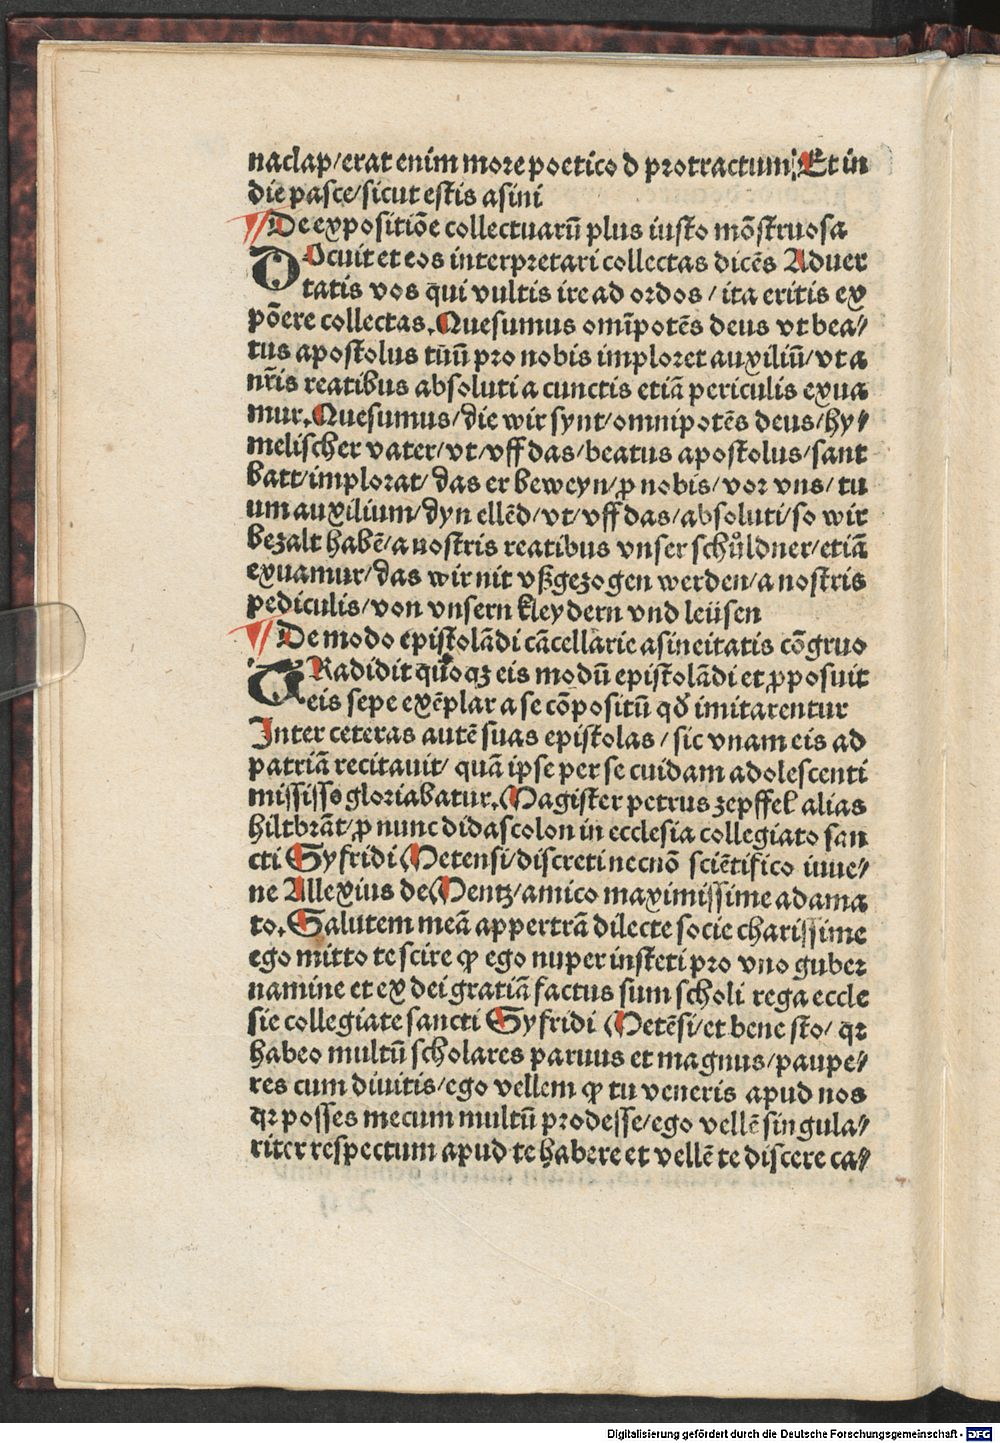 naclap/erat enim more poetico d protractum/Et in
die pasce/sicut estis asini
De expositiōe collectuarū plus iusto mōstruosa
DOcuit et eos interpretari collectas dicēs Aduer
tatis vos qui vultis ire ad ordos/ita eritis ex
pōere collectas.Quesumus omīpotēs deus vt bea/
tus apostolus tūū pro nobis imploret auxiliū/vt a
nr̄is reatibus absoluti a cunctis etiā periculis exua
mur.Quesumus/die wir synt/omnipotēs deus/hy/
melischer vater/vt/vff das/beatus apostolus/sant
batt/implorat/das er beweyn/ꝓ nobis/vor vns/tu
um auxilium/dyn ellēd/vt/vff das/absoluti/so wir
bezalt habē/a nostris reatibus vnser schůldner/etiā
exuamur/das wir nit vßgezogen werden/a nostris
pediculis/von vnsern kleydern vnd leüsen
De modo epistolādi cācellarie asineitatis cōgruo
TRadidit quoqꝫ eis modū epistolādi et ꝓposuit
eis sepe exēplar a se cōpositū qď imitarentur
Inter ceteras autē suas epistolas/sic vnam eis ad
patriā recitauit/quā ipse per se cuidam adolescenti
mississe gloriabatur.Magister petrus zepffel alias
hiltbrāt/ꝓ nunc didascolon in ecclesia collegiato san
cti Syfridi Metensi/discreti necnō sciētifico iuue/
ne Allexius de Mentz/amico maximissime adama
to.Salutem meā appertrā dilecte socie charissime
ego mitto te scire ꝙ ego nuper insteti pro vno guber
namine et ex dei gratiā factus sum scholi rega eccle
sie collegiate sancti Syfridi Metēsi/et bene sto/qꝛ
habeo multū scholares paruus et magnus/paupe/
res cum diuitis/ego vellem ꝙ tu veneris apud nos
qꝛ posses mecum multū prodesse/ego vellē singula/
riter respectum apud te habere et vellē te discere ca/
Digitalisierung gefördert durch die Deutsche Forschungsgemeinschaft - DFG